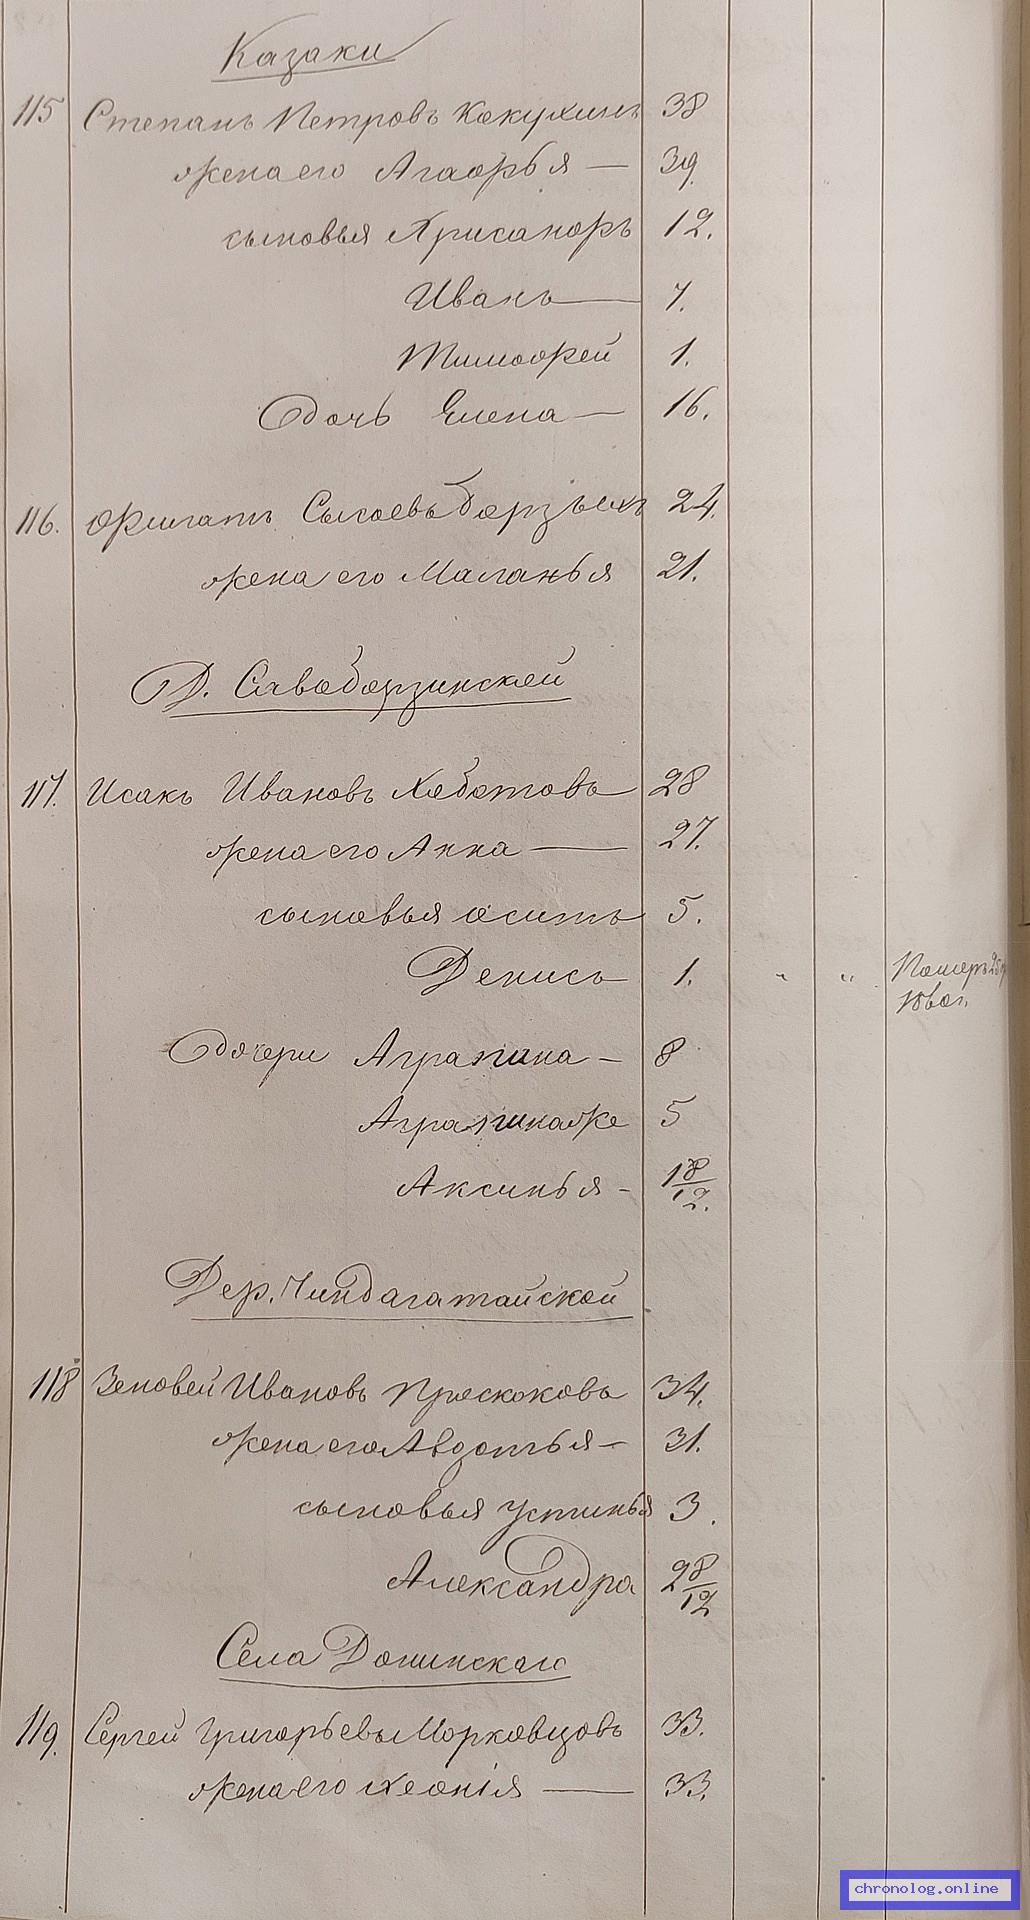 Казаки
115 Степанъ Петровъ Кокухинъ 38
жена его Агафья — 39.
сыновья Хрисанфъ 12.
Иванъ — 7.
Тимофей 1.
Дочь Елена — 16.
116. Филатъ Сысоевъ Борзыхъ 24.
жена его Маланья 21.
Д. Савоборзинской
117. Исакъ Ивановъ Хоботовъ 28
жена его Анна — 27.
сыновья Осипъ 5.
Денисъ 1. " " Померъ
Дочери Аграпина — 8
Аграпина же 5
Аксинья - 18/12.
Дер. Чиндагатайской
118 Зеновей Ивановъ Прескоковъ 34.
жена его Авдотья — 31.
сыновья Устинья 3.
Александра 28/12
Села Донинскаго
119. Сергей Григорьевъ Морковцовъ 33.
жена его Хеонія — 33.
chronolog.online